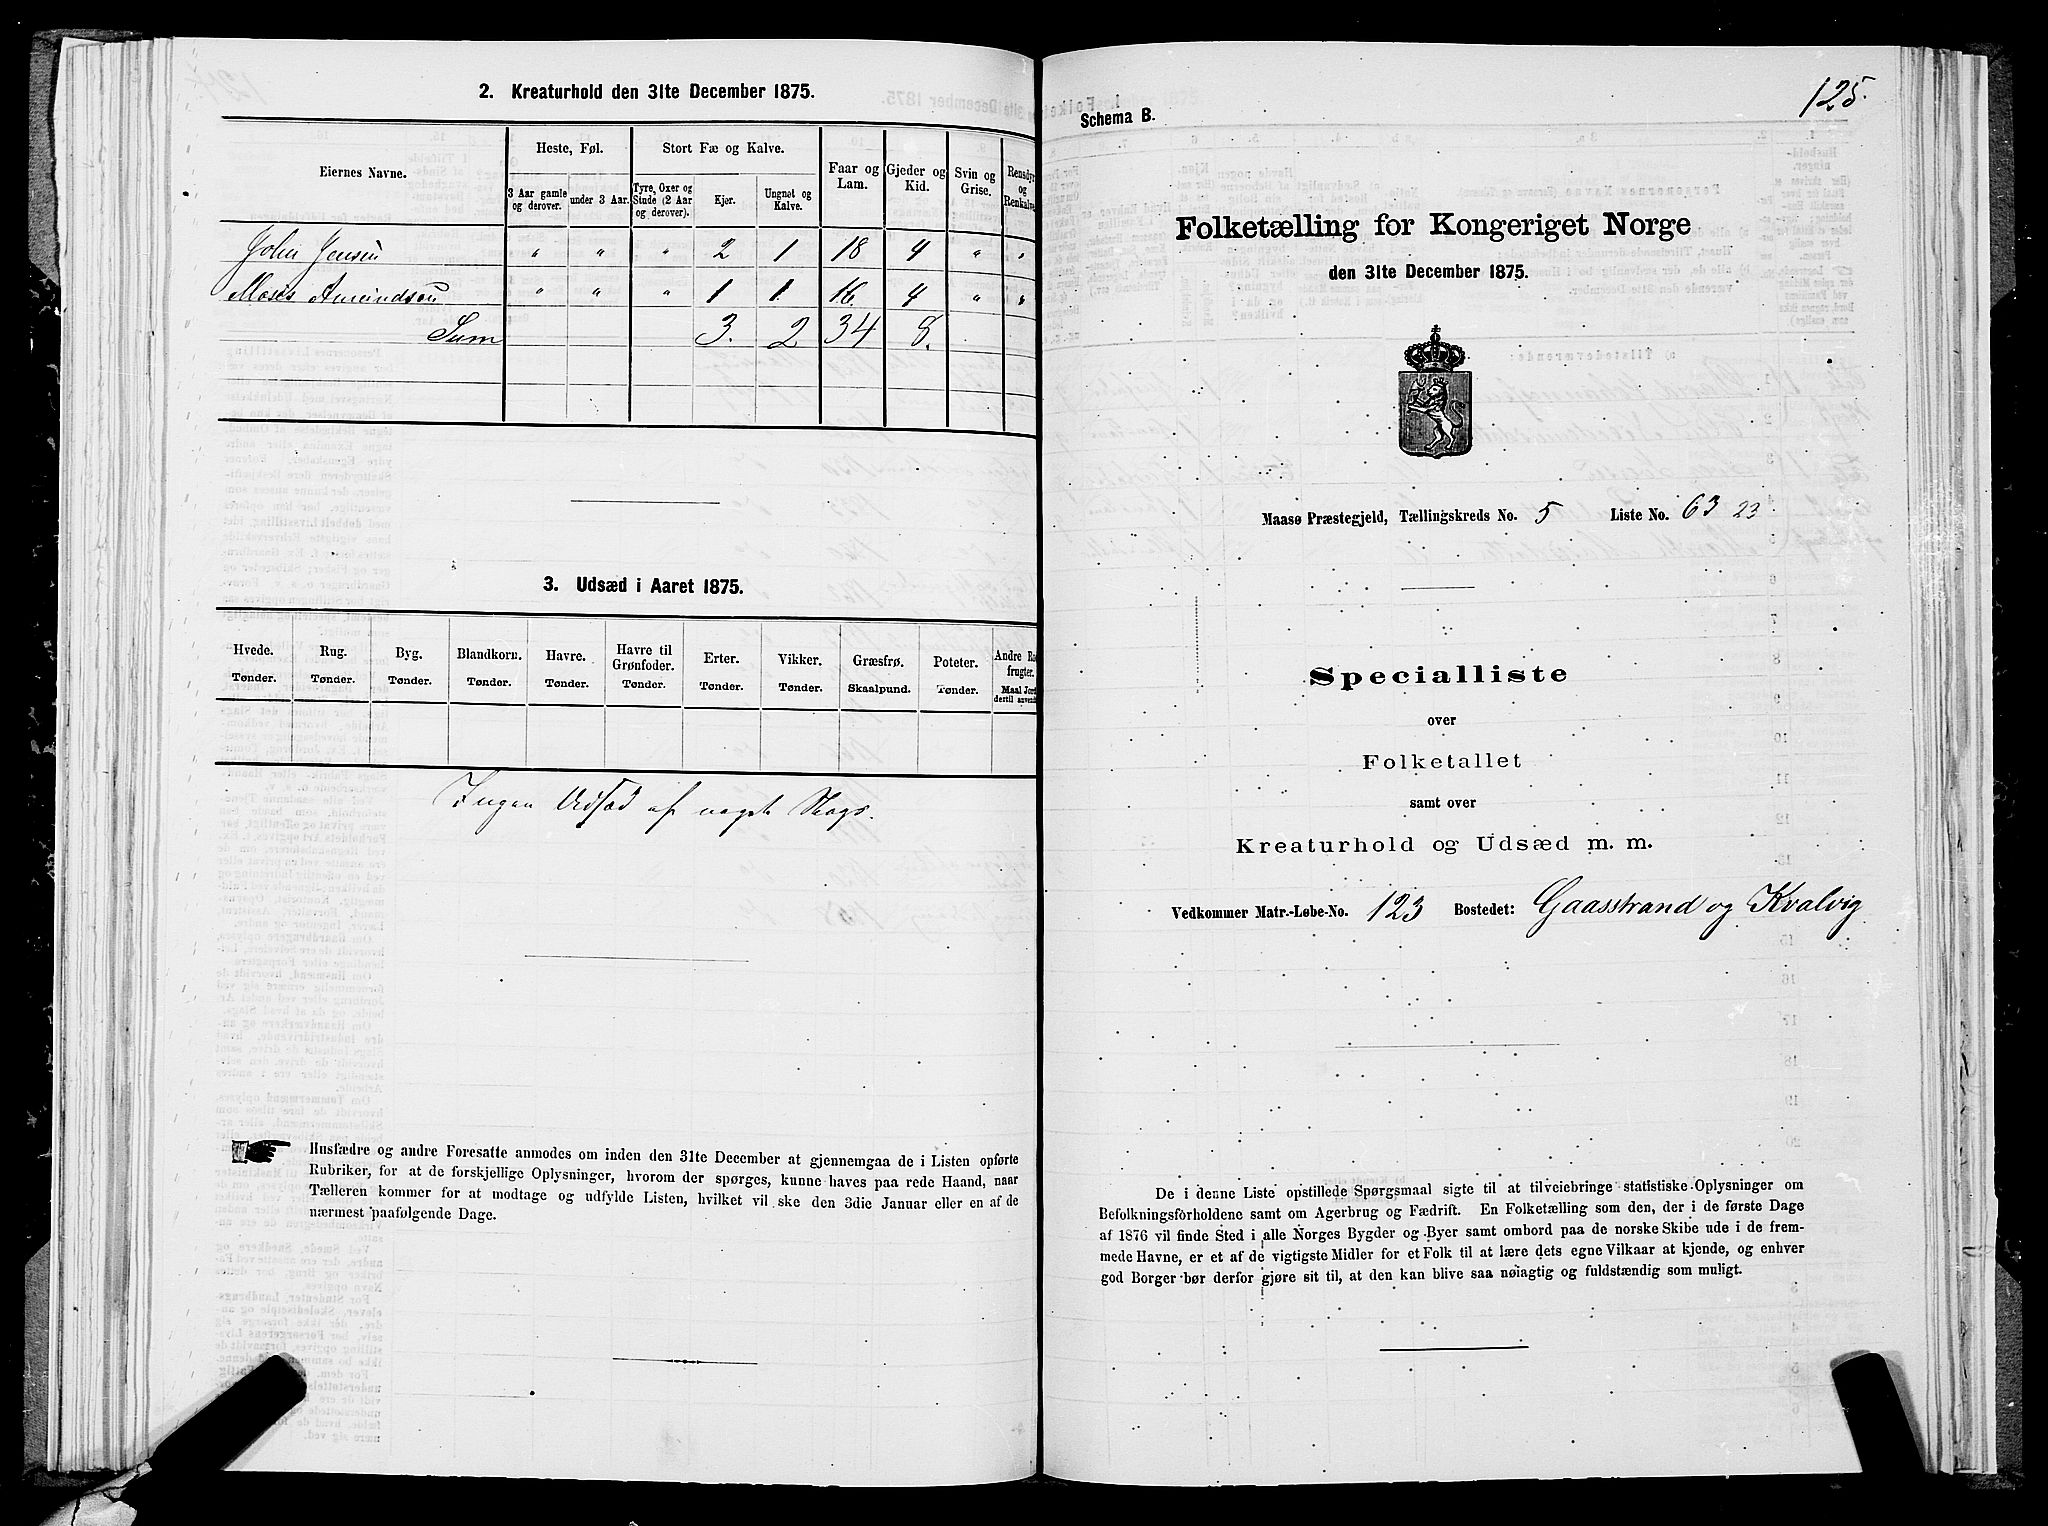 2. Kreaturhold den 31te December 1875.
Eiernes Navne.
Heste, Føl.
Stort Fæ og Kalve.
Faar og Lam.
Gjeder og Kid.
Svin og Grise.
Rensdyr og Renkalve
3 Aar gamle og derover.
under 3 Aar.
Tyre, Oxer og Stude (2 Aar og derover).
Kjør.
Ungnøt og Kalve.
John Jensen " " " 2 1 18 4 " "
Moses Amundsen " " " 1 1 16 4 " "
Sum 3. 2 34 8.
3. Udsæd i Aaret 1875.
Hvede. Rug. Byg. Blandkorn. Havre. Havre til Grønfoder. Erter. Vikker. Græsfrø. Poteter. Andre Ro frugter.
Tønder. Tønder. Tønder. Tønder. Tønder. Tønder. Tønder. Tønder. Skaalpund. Tønder. Maal Jord dertil anvendt
Ingen Udsæd af noget Slags.
Husfædre og andre Foresatte anmodes om inden den 31te December at gjennemgaa de i Listen opførte
Rubriker, for at de forskjellige Oplysninger, hvorom der spørges, kunne haves paa rede Haand, naar
Tælleren kommer for at modtage og udfylde Listen, hvilket vil ske den 3die Januar eller en af de
nærmest paafølgende Dage.
125.
Schema B.
Folketælling for Kongeriget Norge
den 31te December 1875.
Maasø Præstegjeld, Tællingskreds No. 5 Liste No. 63 23
Specialliste
over
Folketallet
samt over
Kreaturhold og Udsæd m. m.
Vedkommer Matr.-Løbe-No. 123 Bostedet: Gaasstrand og Kvalvig
De i denne Liste opstillede Spørgsmaal sigte til at tilveiebringe statistiske Oplysninger om
Befolkningsforholdene samt om Agerbrug og Fædrift. En Folketælling som den, der i de første Dage
af 1876 vil finde Sted i alle Norges Bygder og Byer samt ombord paa de norske Skibe ude i de frem-
mede Havne, er et af de vigtigste Midler for et Folk til at lære dets egne Vilkaar at kjende, og enhver
god Borger bør derfor gjøre sit til, at den kan blive saa nøiagtig og fuldstændig som muligt.